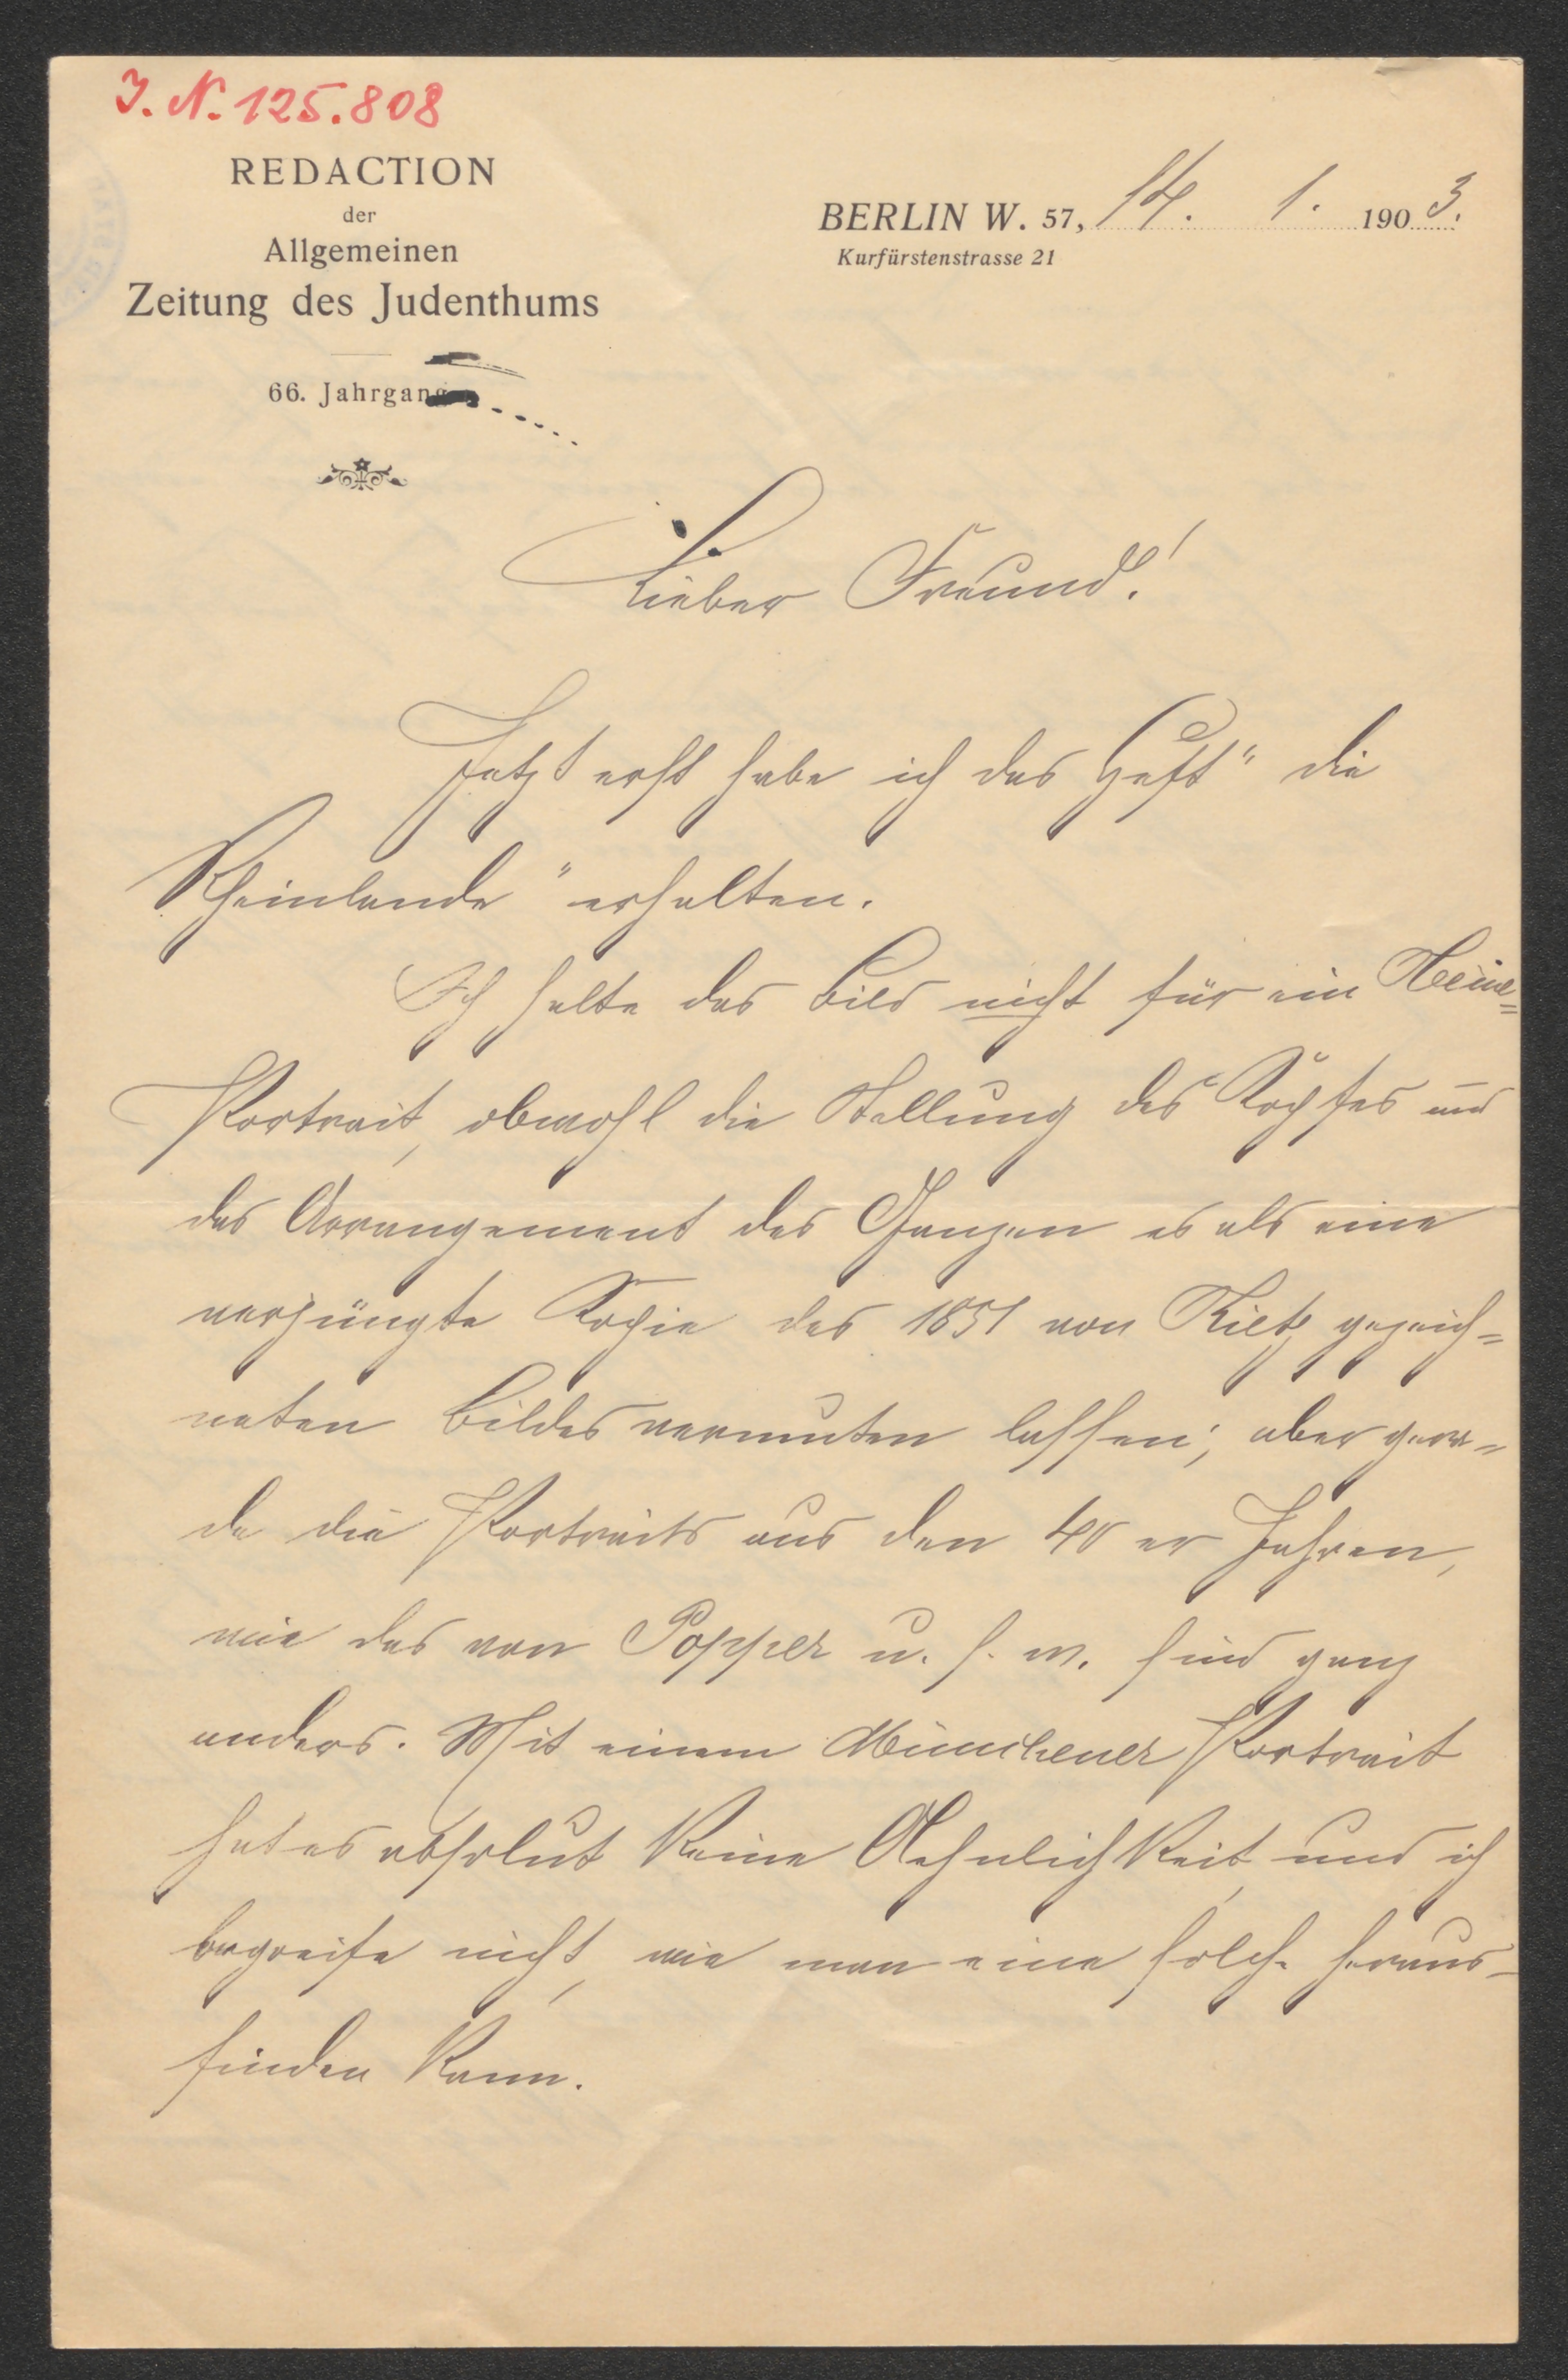 J. N. 125.808
REDACTION
der
Allgemeinen
Zeitung des Judenthums
66. Jahrgang
BERLIN W. 57, 14. 1. 1903.
Kurfürstenstrasse 21
Lieber Freund!
Jetzt erst habe ich das Heft "die
Rheinlande" erhalten.
Ich halte das Bild nicht für ein Heine-
Portrait, obwohl die Stellung des Kopfes und
das Arrangement des Ganzen es als eine
verjüngte Kopie des 1851 von Kietz gezeich-
neten Bildes vermuten lassen; aber gera-
de die Portraits aus den 40er Jahren,
wie das von Popper u. s. w. sind ganz
anders. Mit einem Münchener Portrait
hat es absolut keine Aehnlichkeit, und ich
begreife nicht, wie man eine solche heraus-
finden kann.